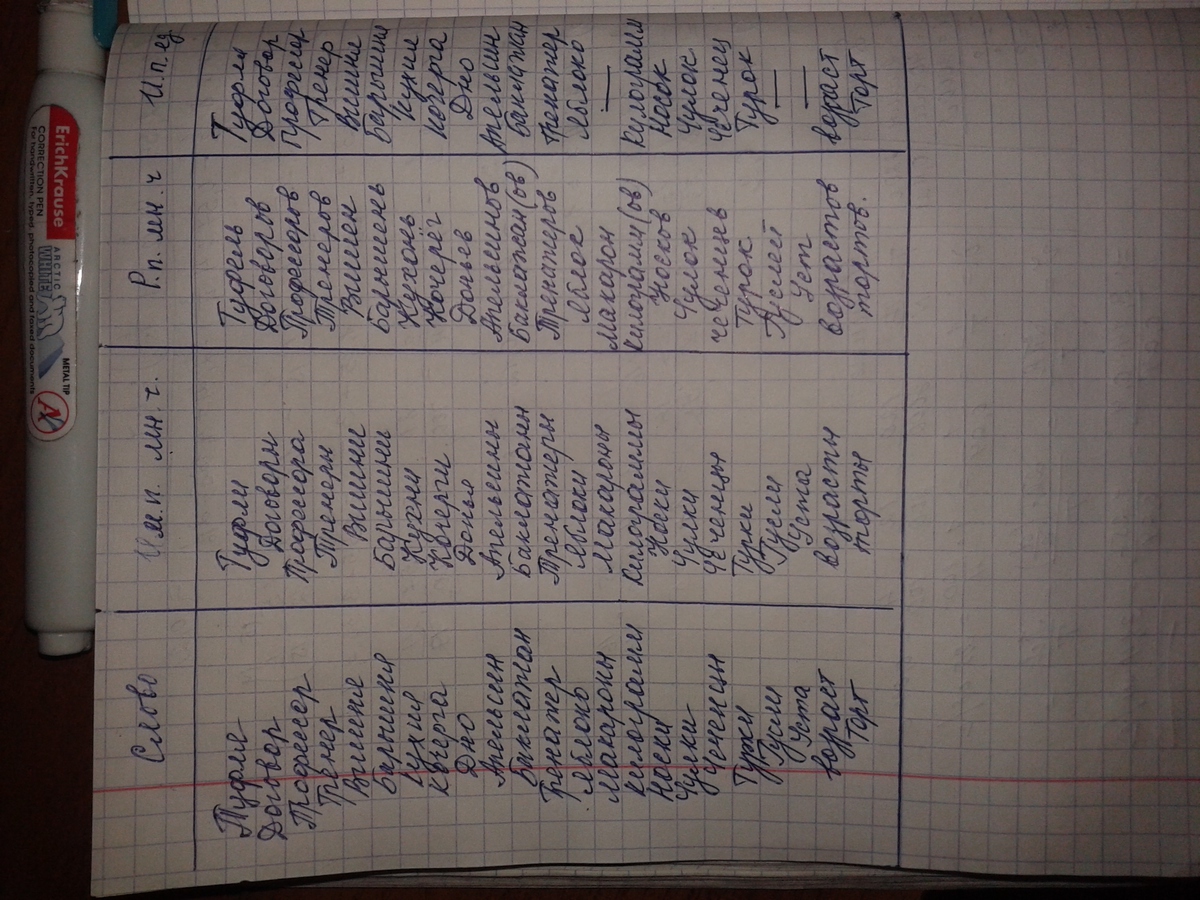 Слово Им.п. мн.ч. Р.п. мн.ч И.п.ед
Туфля Туфли Туфель
Договор Договоры Договоров Договор
Профессор Профессора Профессоров Профессор
Тренер Тренеры Тренеров Тренер
Вишня Вишни Вишен
Барышня Барышни Барышень
Кухня Кухни Кухонь
Кочерга Кочерги Кочерёг Кочерга
Дно Донья Доньев Дно
Апельсин Апельсины Апельсинов Апельсин
Баклажан Баклажаны Баклажан(ов) Баклажан
Тренажер Тренажеры Тренажеров Тренажер
Яблоко Яблоки Яблок Яблоко
Макароны Макароны Макарон —
Килограмм Килограммы Килограмм(ов) Килограмм
Носки Носки Носков Носок
Чулки Чулки Чулок Чулок
Чеченцы Чеченцы Чеченцев Чеченец
Турки Турки Турок Турок
Гусли Гусли —
Уста Уста Уст —
возраст возрасты возрастов возраст
Торт торты тортов. Торт
ErichKrause
CORRECTION PEN
For handwritten, typed, photocopied and faxed documents
ARCTIC
WHITE
METAL TIP